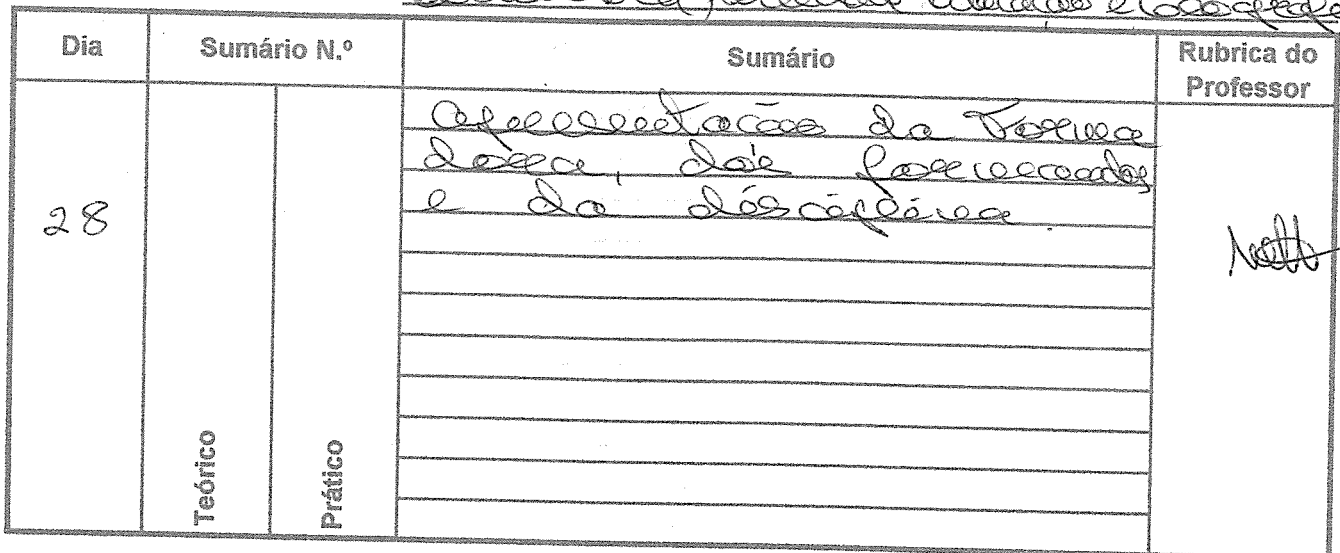 Dia Sumário N.º Sumário Rubrica do Professor
Teórico Prático
28
Apresentação da Forma
dora, dos formandos
e da disciplina.